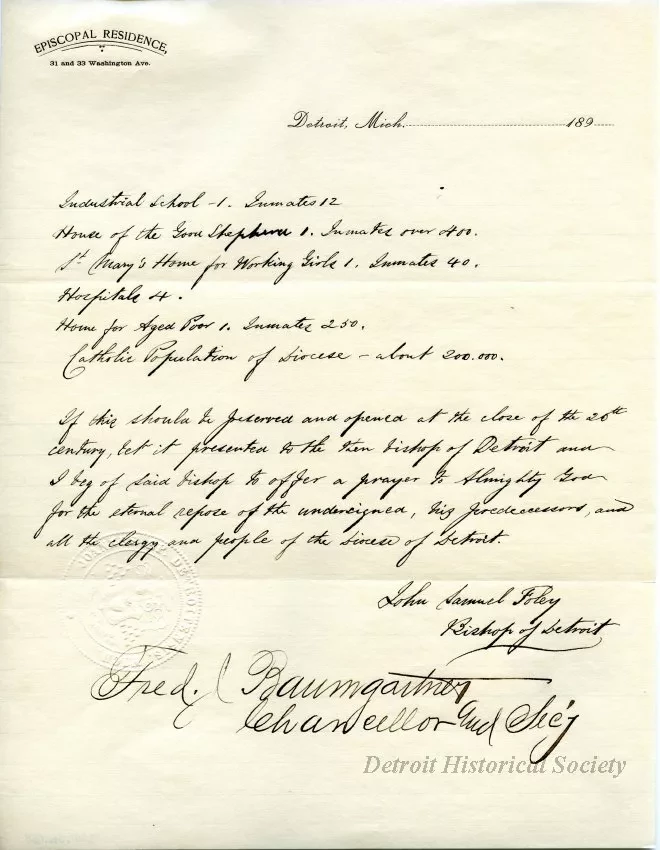 EPISCOPAL RESIDENCE,
31 and 33 Washington Ave.
Detroit, Mich. 189
Industrial School - 1. Inmates 12
House of the Good Shepherd 1. Inmates over 400.
St Mary's Home for Working Girls 1. Inmates 40.
Hospitals 4.
Home for Aged Poor 1. Inmates 250.
Catholic Population of Diocese - about 200.000.
If this should be preserved and opened at the close of the 20th
century, let it presented to the then bishop of Detroit and
I beg of said bishop to offer a prayer to Almighty God
for the eternal repose of the undersigned, his predecessors, and
all the clergy and people of the Diocese of Detroit.
John Samuel Foley
Bishop of Detroit
Fred. J Baumgartner
Chancellor and Sec'y
Detroit Historical Society